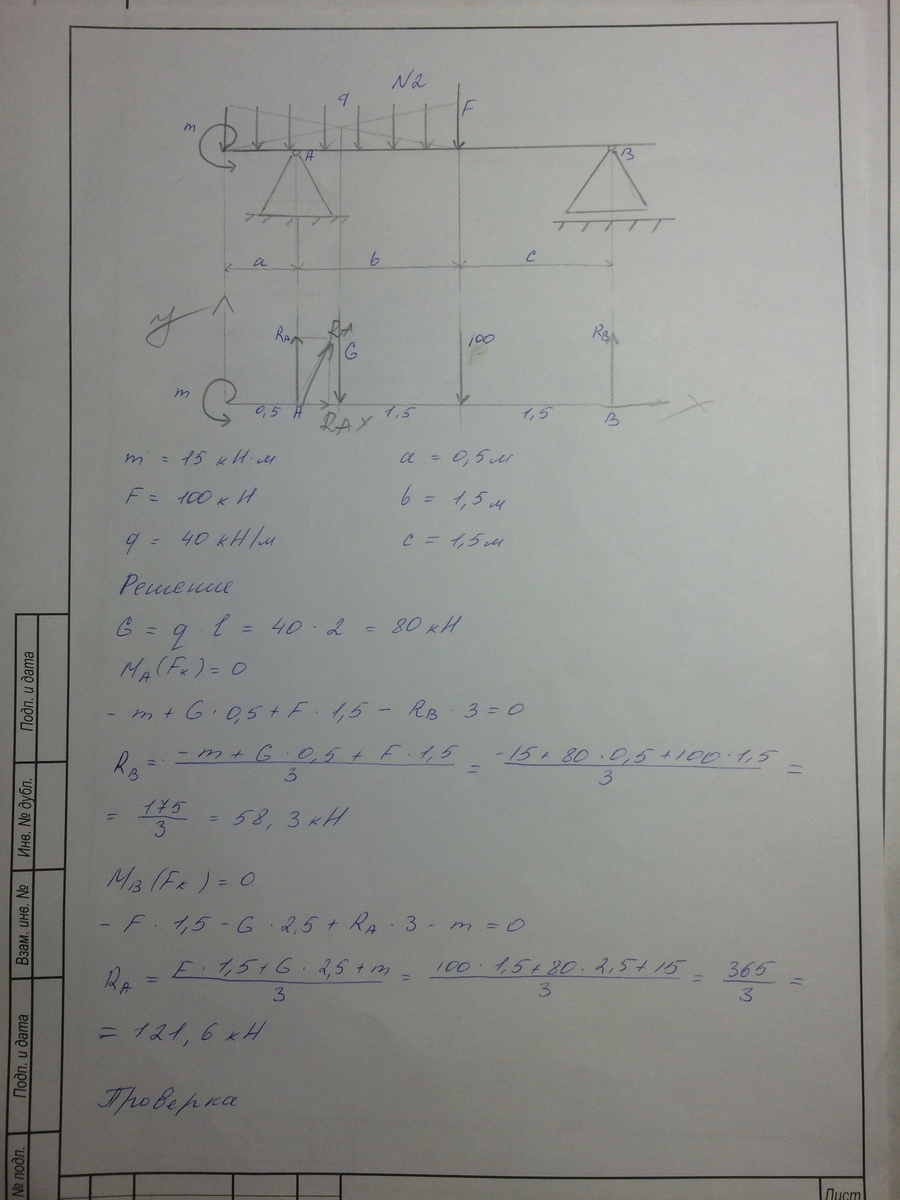 N2
q
F
m
A
B
a b c
y
RA RA G 100 RB
F
m
0,5 A RAX 1,5 1,5 B X
m = 15 кН·м a = 0,5 м
F = 100 кН b = 1,5 м
q = 40 кН/м c = 1,5 м
Решение
G = q · l = 40 · 2 = 80 кН
MA (Fк) = 0
- m + G · 0,5 + F · 1,5 - RB · 3 = 0
RB = -m + G · 0,5 + F · 1,5 / 3 = -15 + 80 · 0,5 + 100 · 1,5 / 3 =
= 175 / 3 = 58,3 кН
MB (Fк) = 0
- F · 1,5 - G · 2,5 + RA · 3 - m = 0
RA = F · 1,5 + G · 2,5 + m / 3 = 100 · 1,5 + 80 · 2,5 + 15 / 3 = 365 / 3 =
= 121,6 кН
Проверка
Подп. и дата
Инв. № дубл.
Взам. инв. №
Подп. и дата
№ подп.
Лист